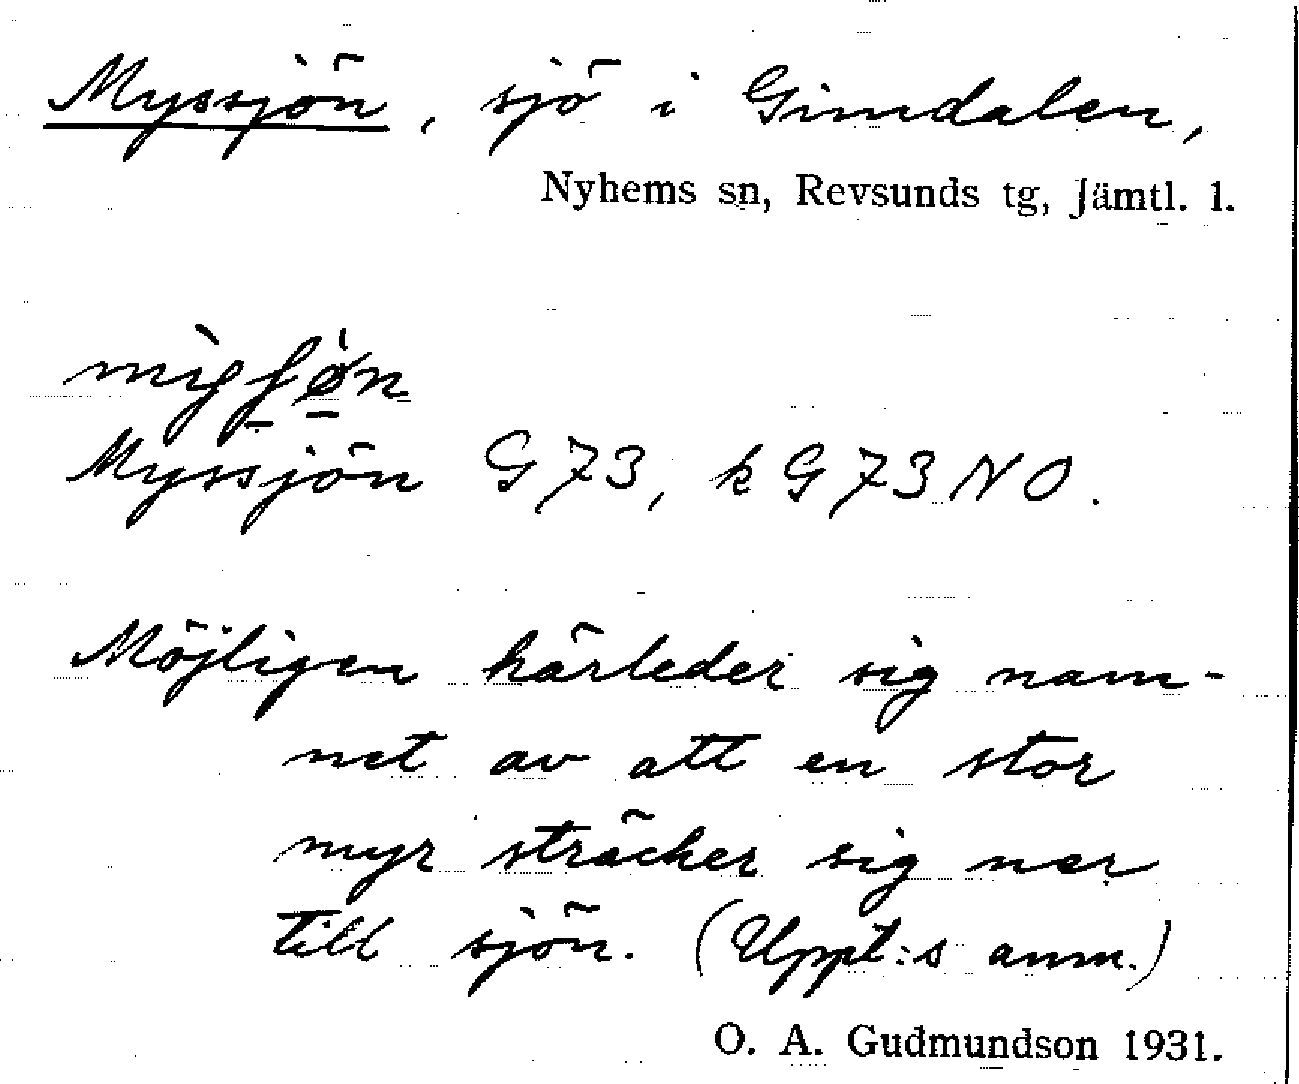 Myssjön, sjö i Gimdalen,
Nyhems sn, Revsunds tg, Jämtl. l.
Myssjön G 73, k G 73 NO.
Möjligen härleder sig nam-
net av att en stor
myr sträcker sig ner
till sjön. (Uppt:s anm.)
O. A. Gudmundson 1931.